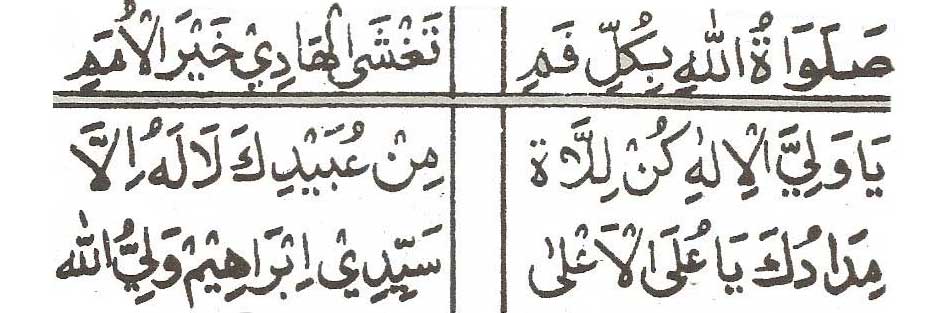 صَلَوَاةُ اللّٰهِ بِكُلِّ فَمِ تَغْشَى الْهَادِيْ خَيْرَ الْاُمَمِ
يَا وَلِيَّ الْاِلٰهِ كُنْ لِلَّاةَ مِنْ عُبَيْدِكَ لَا لَهُ اِلَّا
مِدَادُكَ يَا عُلَى الْاَعْلٰى سَيِّدِيْ اِبْرَاهِيْمْ وَلِيُّ اللّٰه